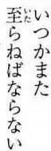 いつかまた
至らねばならない
いた